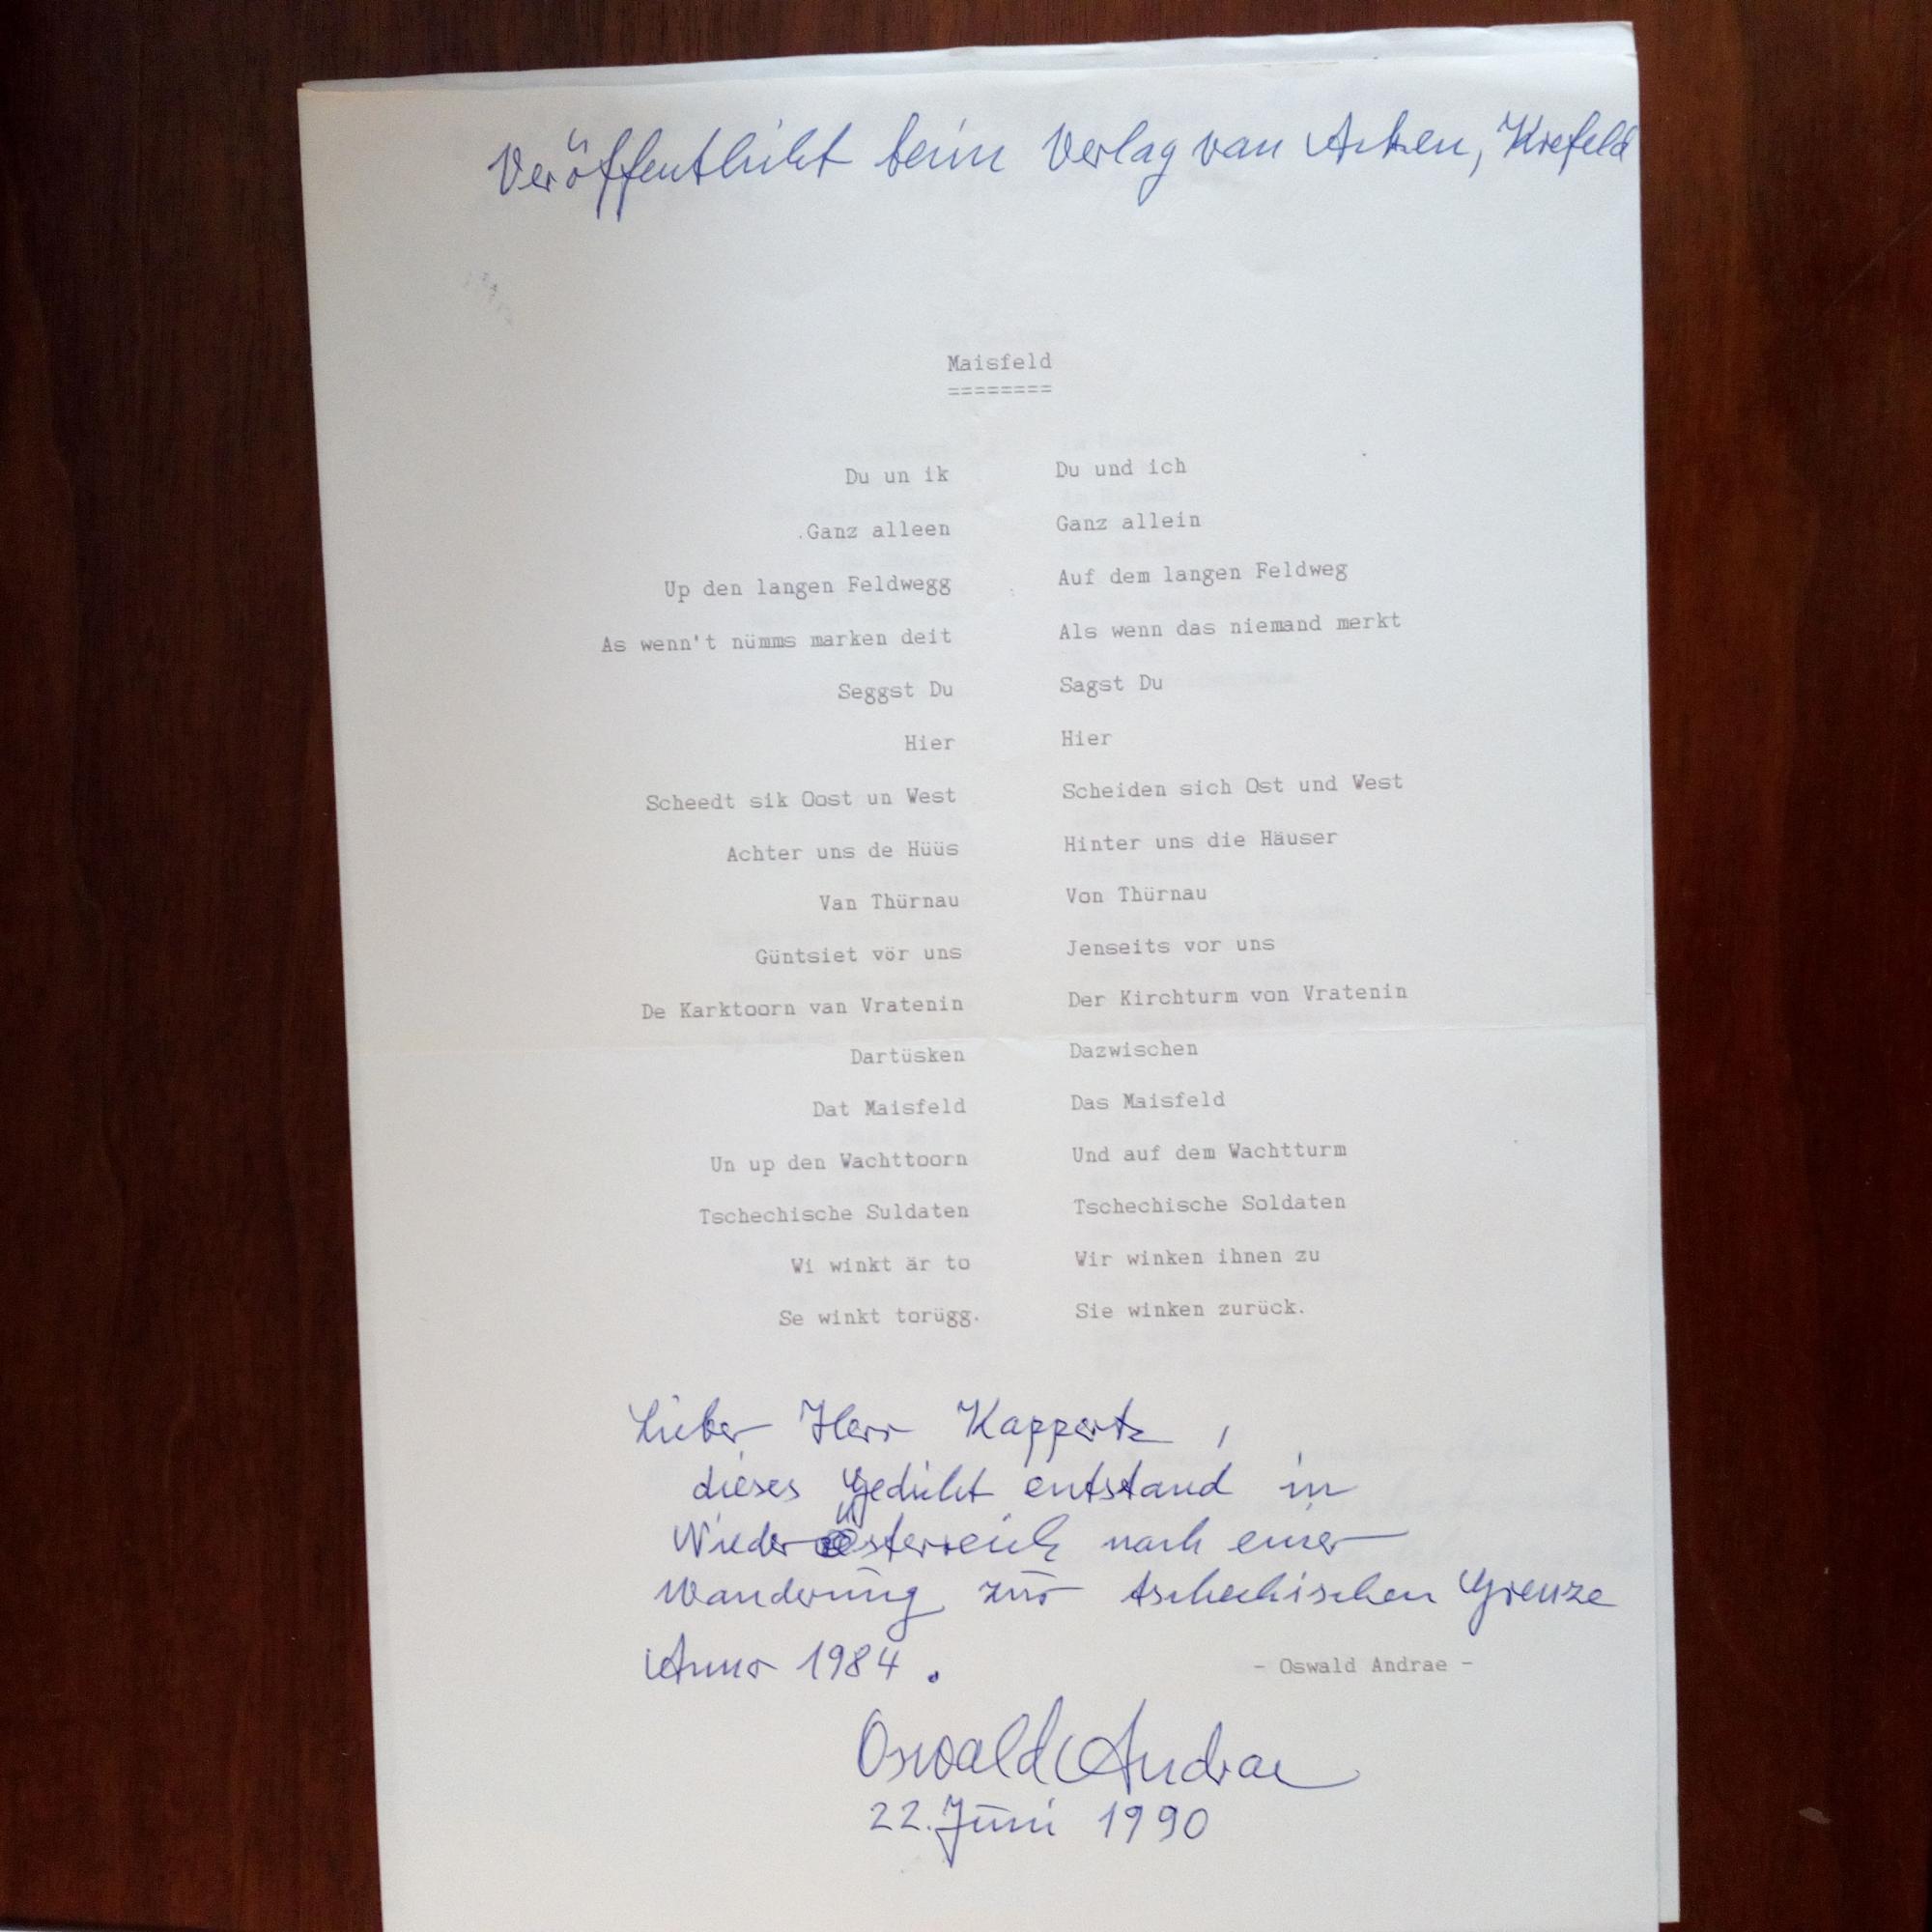 Veröffentlicht beim Verlag van Acken, Krefeld
Maisfeld
========
Du un ik Du und ich
Ganz alleen Ganz allein
Up den langen Feldwegg Auf dem langen Feldweg
As wenn't nümms marken deit Als wenn das niemand merkt
Seggst Du Sagst Du
Hier Hier
Scheedt sik Oost un West Scheiden sich Ost und West
Achter uns de Hüüs Hinter uns die Häuser
Van Thürnau Von Thürnau
Güntsiet vör uns Jenseits vor uns
De Karktoorn van Vratenin Der Kirchturm von Vratenin
Dartüsken Dazwischen
Dat Maisfeld Das Maisfeld
Un up den Wachttoorn Und auf dem Wachtturm
Tschechische Suldaten Tschechische Soldaten
Wi winkt är to Wir winken ihnen zu
Se winkt torügg. Sie winken zurück.
Lieber Herr Kappertz,
dieses Gedicht entstand in
Niederösterreich nach einer
Wanderung zur tschechischen Grenze
Anno 1984.
- Oswald Andrae -
Oswald Andrae
22. Juni 1990